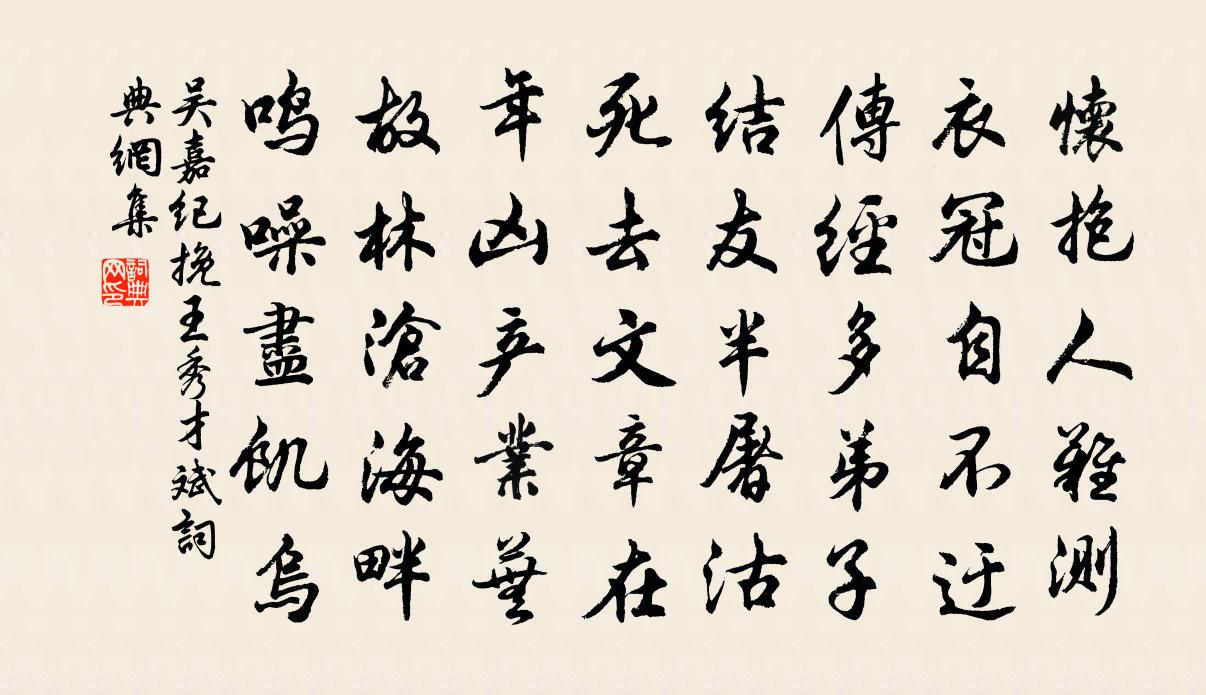 懷抱人難測
衣冠自不迂
傳經多弟子
结友半屠沽
死去文章在
年凶产業蕪
故林滄海畔
鸣噪盡飢烏
吴嘉纪挽王秀才斌詞
典網集
詞典
网印